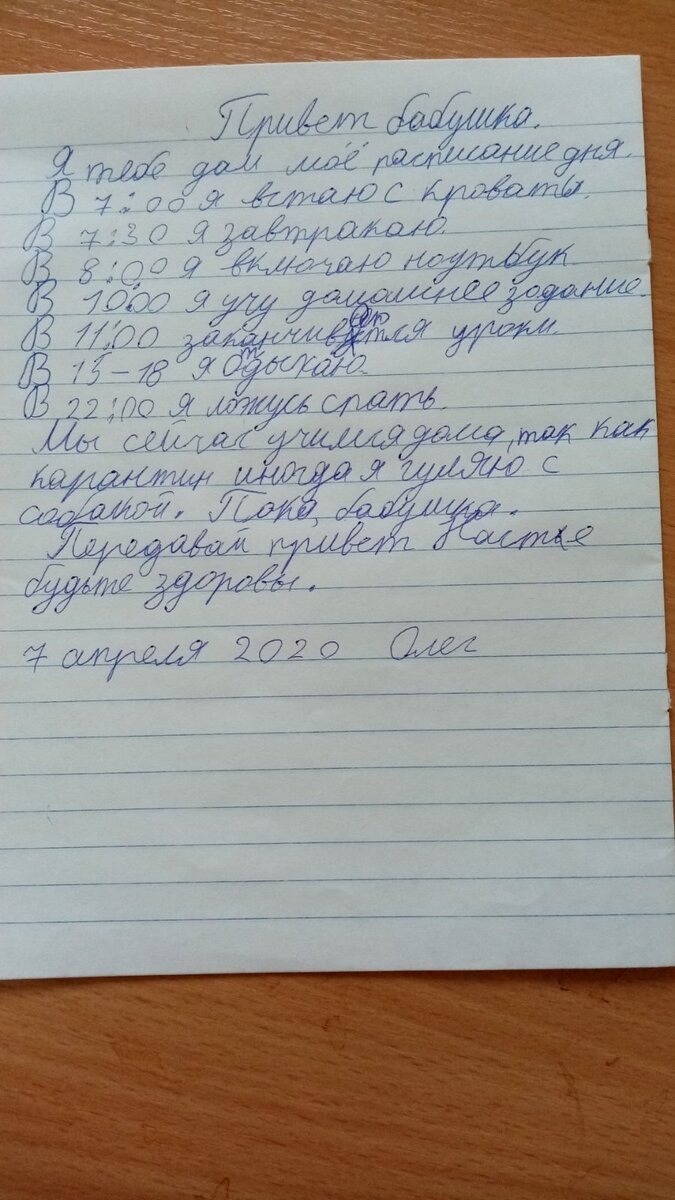 Привет бабушка.
Я тебе дам моё расписание дня.
В 7:00 я встаю с кроваты.
В 7:30 я завтракаю.
В 8:00 я включаю ноутбук
В 10:00 я учу домашнее зодание.
В 11:00 заканчиваются уроки.
В 15-18 я отдыхаю.
В 22:00 я ложусь спать.
Мы сейчас учимся дома, так как
карантин иногда я гуляю с
собакой. Пока, бабушка.
Передавай привет Настье
будьте здоровы.
7 апреля 2020 Олег